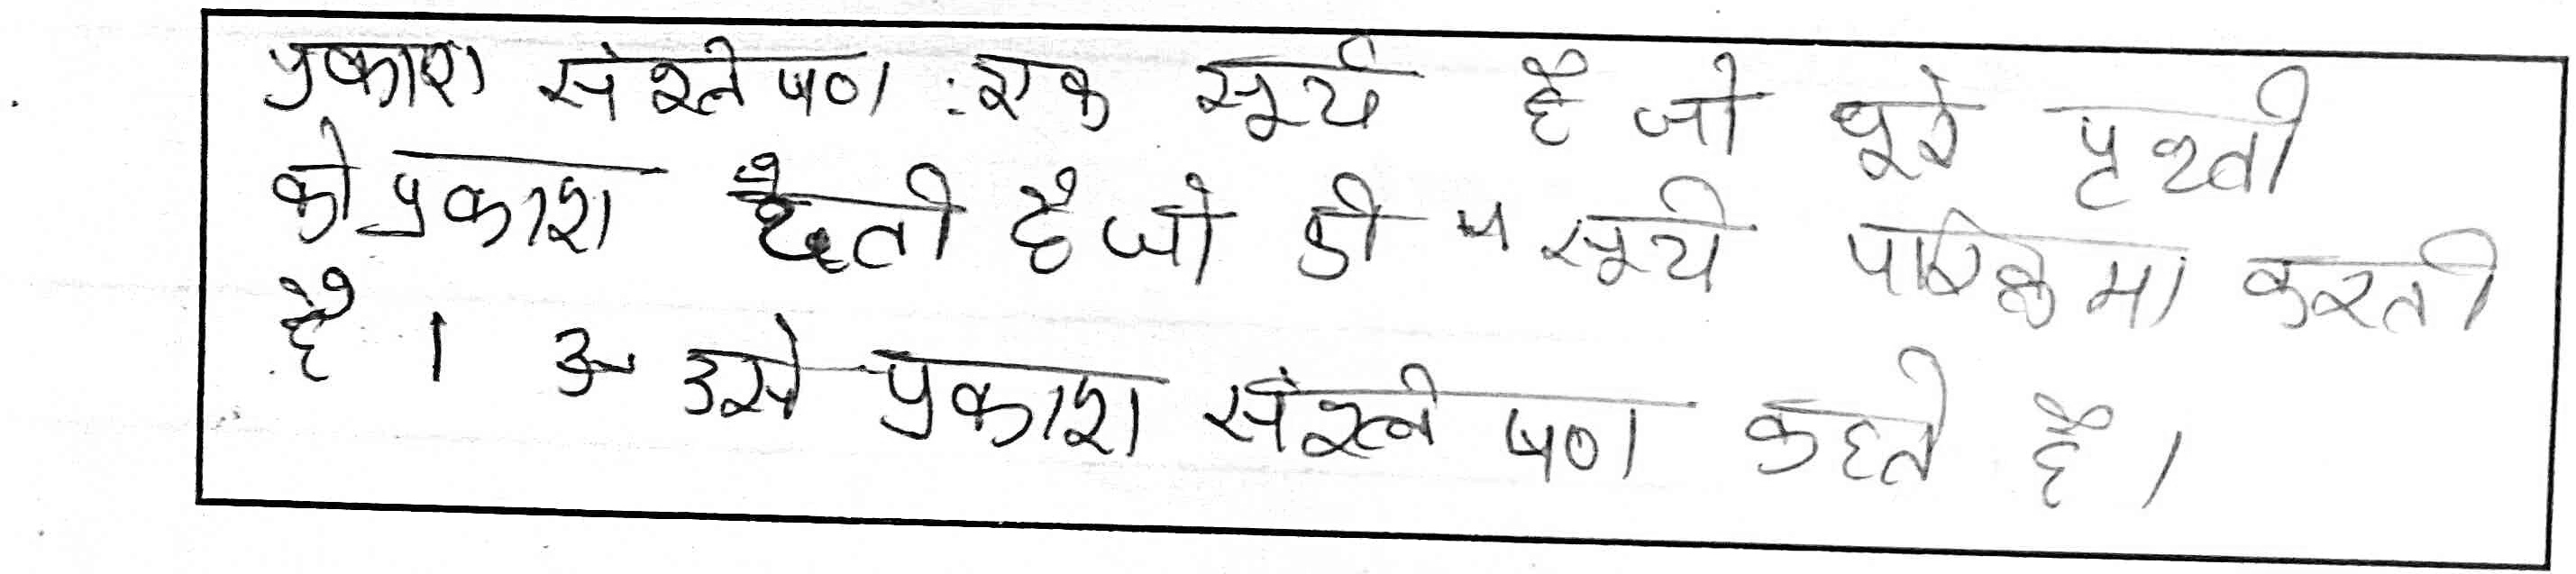 प्रकाश संश्लेषण : एक सूर्य है जो पूरे पृथ्वी
को प्रकाश देती है जो की सूर्य परिक्रमा करती
है । उसे प्रकाश संश्लेषण कहते है ।